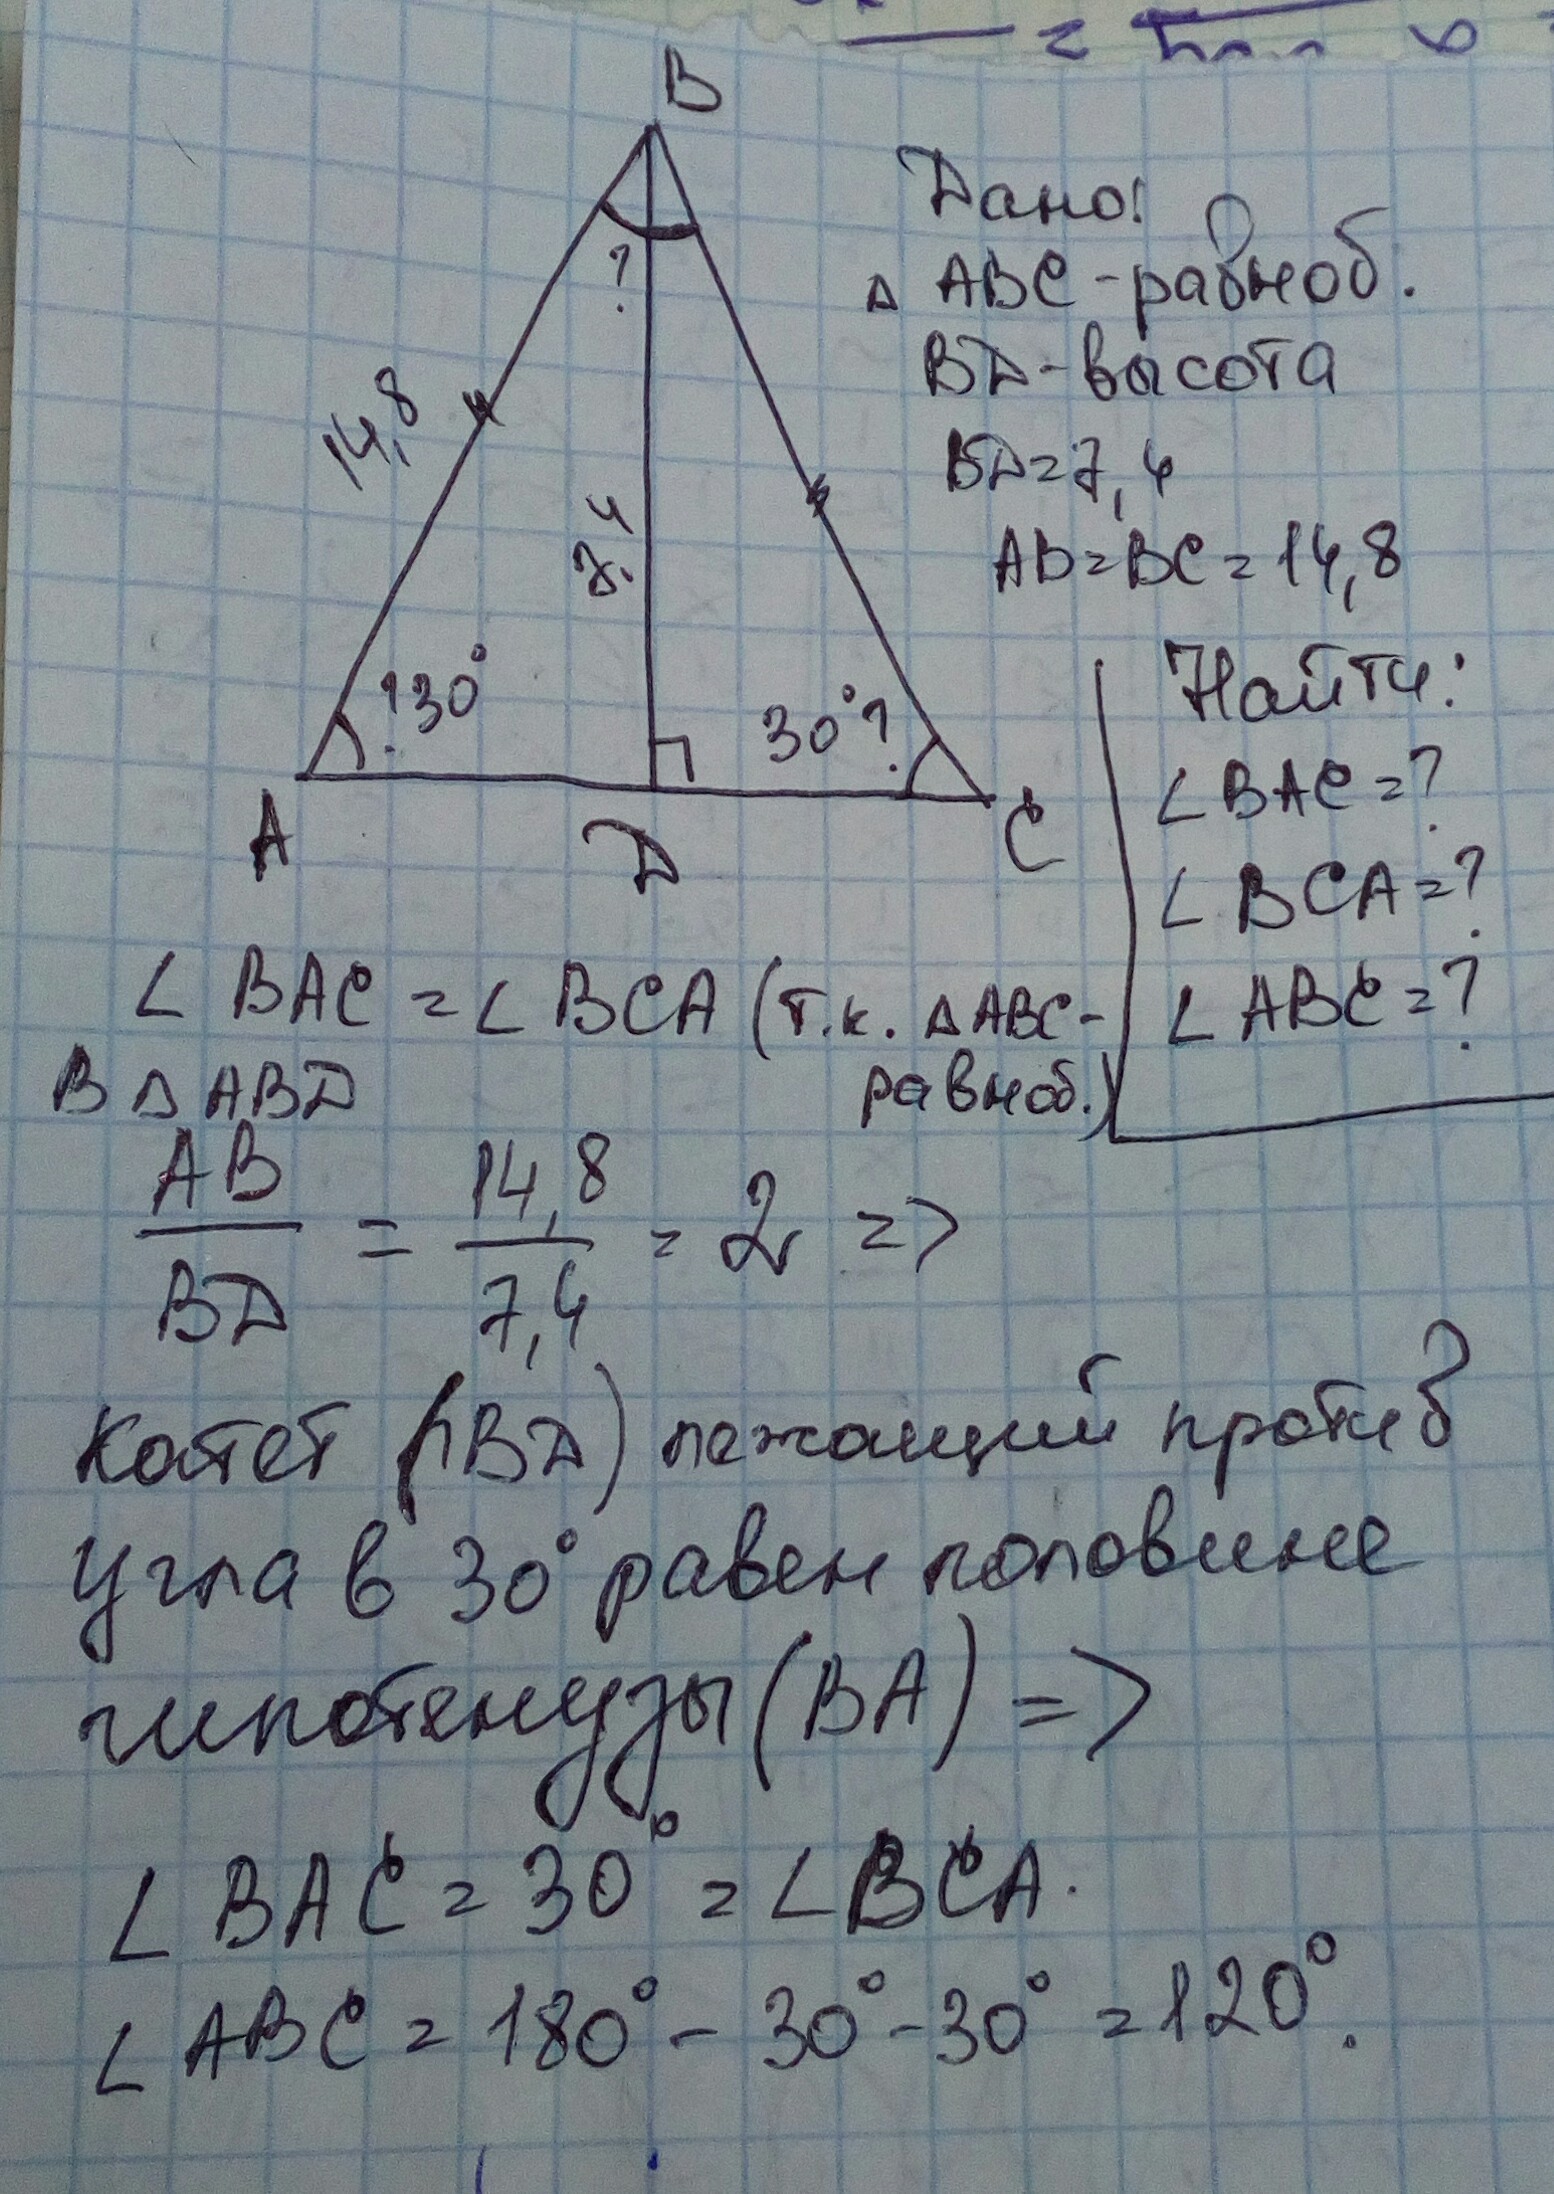 B
Дано:
△ ABC - равноб.
BD - высота
BD = 7,4
AB = BC = 14,8
?
14,8
7,4
? 30°
30° ?
A
D
C
Найти:
∠ BAC = ?
∠ BCA = ?
∠ ABC = ?
∠ BAC = ∠ BCA (т.к. △ ABC -
равноб.)
В △ ABD
AB / BD = 14,8 / 7,4 = 2 =>
Катет (BD) лежащий против
угла в 30° равен половине
гипотенузы (BA) =>
∠ BAC = 30° = ∠ BCA.
∠ ABC = 180° - 30° - 30° = 120°.